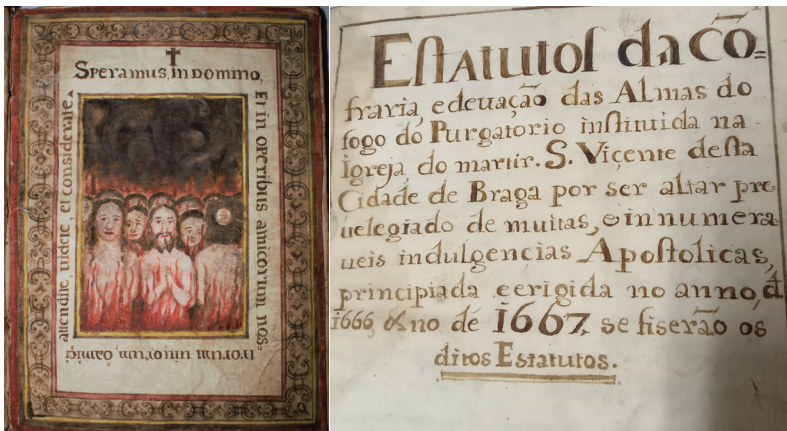 Speramus, in Domino,
Et in operibus amicorum nos=
trorum uiuorum, ô amigi
attendite, uidete, et considerate
Eſtatutoſ da Cõ=
fraria, e deuação das Almas do
fogo do Purgatorio inſtituida na
Igreja, do martir. S. Viçente deſta
Cidade de Braga por ser altar pre
uelegiado de muitas, e innumera
ueis indulgençias Apoſtolicas,
principiada e erigida no anno, đ
1666, & no de 1667, se fiserão os
ditos Estatutos.